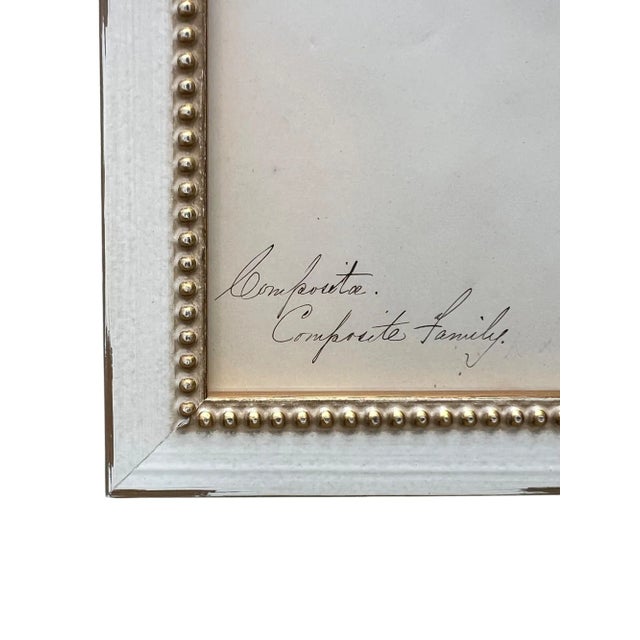 Compositæ.
Composite Family.